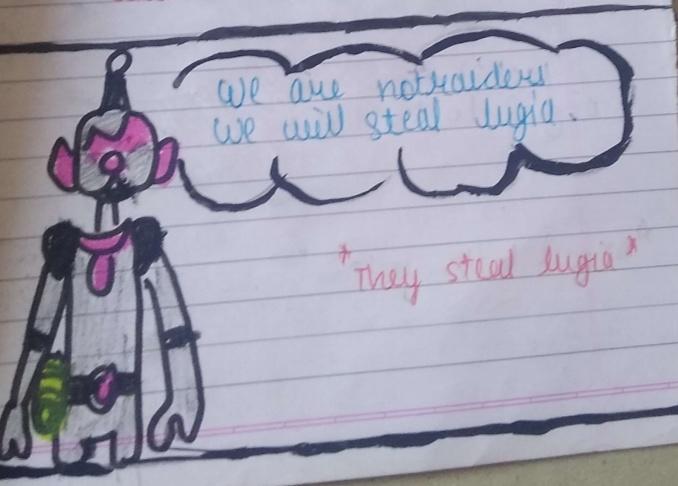 we are notraiders
we will steal lugia.
*They steal lugia*